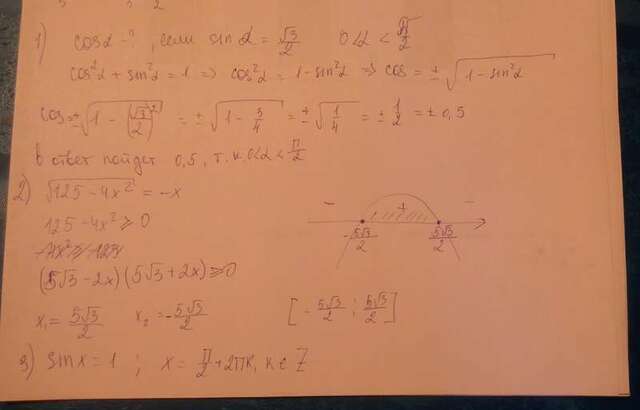 1) cosα - ?, если sin α = √3/2 0<α<π/2
cos²α + sin²α = 1 => cos²α = 1 - sin²α => cos = ±√(1 - sin²α)
cos = ±√(1 - (√3/2)²) = ±√(1 - 3/4) = ±√(1/4) = ±1/2 = ±0,5
в ответ пойдет 0,5, т.к. 0<α<π/2
2) √(125 - 4x²) = -x
125 - 4x² ≥ 0
(5√3 - 2x)(5√3 + 2x) ≥ 0
- + -
-5√3/2 5√3/2
x₁ = 5√3/2 x₂ = -5√3/2 [-5√3/2 ; 5√3/2]
3) sin x = 1 ; x = π/2 + 2πk, k ∈ Z